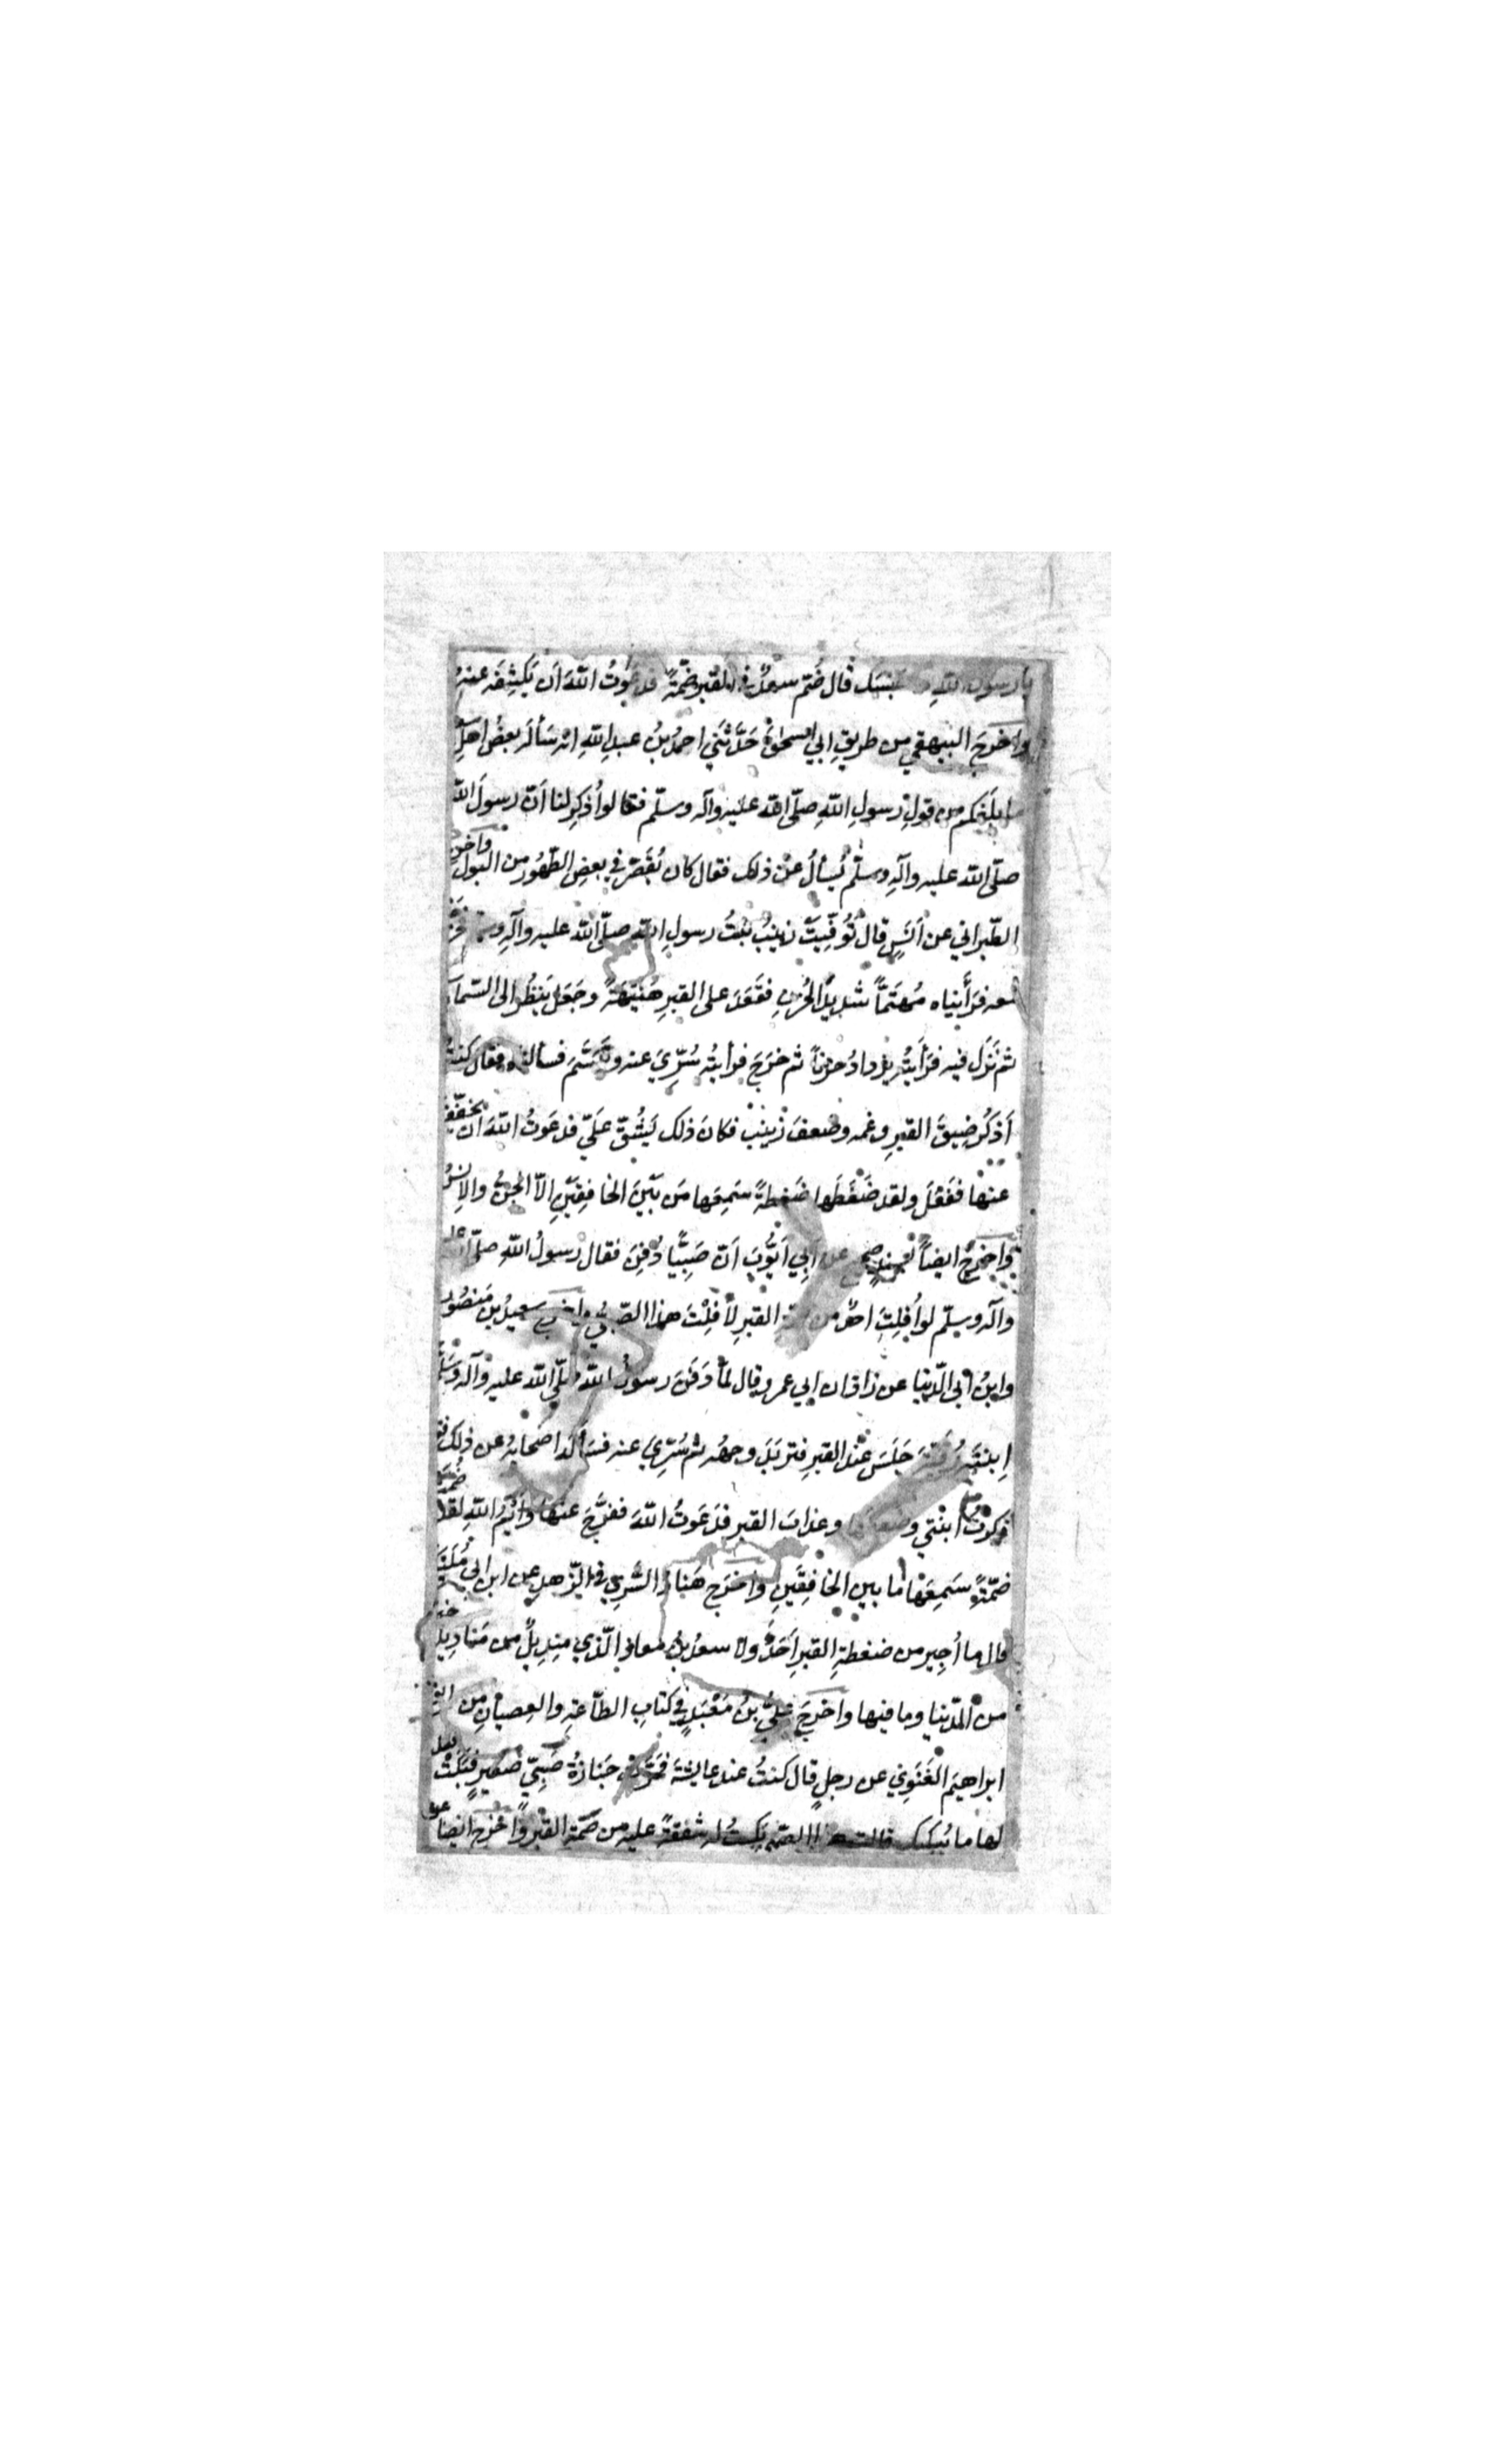 يا رسول الله حبسك قال ضُمّ سعدٌ في القبر ضمّةً فدعوتُ اللهَ اَن يَكشِفَه عنهُ
واخرجَ البيهقي من طريقِ ابي اسحٰق حَدَّثَنِي احمدُ بنُ عبدِ اللهِ انّه سَأَلَ بعضُ اهلِ سعد
ما بلَغكم من قولِ رسولِ اللهِ صلّى الله عليه وآله وسلّم فقالوا ذُكِر لنا اَنّ رسولَ الله
صلّى الله عليه وآلهِ وسلّم سُئل عن ذلك فقال كان يُقَصِّرُ في بعضِ الطّهُور من البول واخرج
الطّبراني عن اَنَسٍ قال تُوفّيَتْ زينبُ بنتُ رسولِ اللهِ صلّى الله عليه وآلهِ وسلّم فخرجنا
معه فرَأيناه مُهتَمًّا شديدَ الحُزنِ فقَعَدَ على القبرِ هُنَيهَةً وجَعَلَ يَنظُر الى السّماء
ثم نَزَل فيه فرَأيتُه يزدادُ حزنًا ثم خرَجَ فرأيتُه سُرِّيَ عنه وتَبَسَّمَ فسألناه فقال كنتُ
اَذكُر ضِيقَ القبرِ وغمه وضعفَ زينب فكانَ ذلك يَشُقّ عَلَيّ فدعَوتُ اللهَ ان يخفّف
عنها ففَعَلَ ولقد ضَغَطَها ضَغطةً سَمِعَها مَن بَيْنَ الخافِقَيْنِ اِلاّ الجنُّ والاِنسُ
واخرجَ ايضاً بسندٍ صحيح عن ابي اَيُّوبَ اَنّ صَبِيًّا دُفِنَ فقال رسولُ اللهِ صلّى الله عليه
وآله وسلّم لو اُفلِتَ احدٌ من ضمة القبرِ لاُفلِتَ هذا الصّبيُّ واخرج سعيدُ بن مَنصُور
وابنُ ابي الدّنيا عن زاذان ابي عمر وقال لمّا دَفَنَ رسولُ اللهِ صلّى الله عليه وآله وسلّم
اِبنتَه رُقيّةَ جَلَسَ عند القبرِ فتربّدَ وجهُه ثم سُرِّيَ عنه فسَألَه اصحابُه عن ذلك فقال
ذكرتُ ابنتي وضعفَها وعذابَ القبرِ فدَعَوتُ اللهَ ففرَّجَ عنها وَاَيْمُ اللهِ لقد ضُمّت
ضمّةً سَمِعَها ما بين الخافِقَينِ واخرَج هَنادُ السَّرِي في الزّهدِ عن ابن ابي مُلَيكَة
قال ما اُجِير من ضغطةِ القبرِ اَحَدٌ ولا سعدُ بنُ معاذٍ الّذي مِندِيلٌ من مَنادِيلِه خير
من الدّنيا وما فيها واخرجَ عليُّ بنُ مَعْبَدٍ في كتابِ الطّاعةِ والعِصيانِ مِن
ابراهيمَ الغَنَوِي عن رجلٍ قال كنتُ عند عايشةَ فمَرَّتْ جَنازةُ صَبِيٍّ صَغيرٍ فبَكَتْ فقلت
لها ما يُبكيك قالت هذا الصّبي بَكَيتُ له شفقةً عليه من ضمّةِ القبرِ واخرج ايضا عن